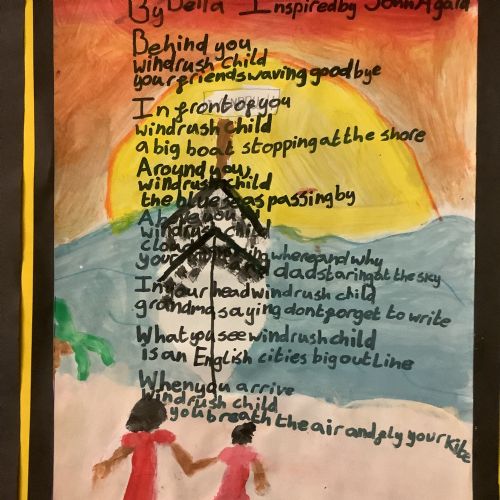 By Bella Inspired by John Agard
Behind you
windrush child
your friends waving good bye
In front of you
windrush child
a big boat stopping at the shore
Around you,
windrush child
the blue seas passing by
Above you
windrush child
where and why
your dad staring at the sky
In your head windrush child
grandma saying dont forget to write
What you see windrush child
Is an English cities big outline
When you arrive
windrush child
you breath the air and fly your kite